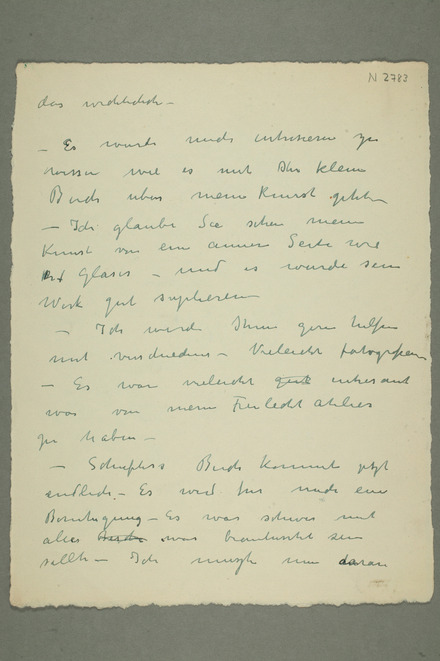 N 2783
das
– Es wurde mich intresieren zu
wissen wie es mit Ihr klein
Buch uber meine Kunst gehter
– Ich glaube Sie sehen meine
Kunst von eine anner Seite wie
Glaser – und es wurde sein
Werk gut suplieren
– Ich wurde Ihnen gern helfen
mit verschiedene – Vieleicht fotografieren
– Es war vieleicht gut intresant
was von meine Freilecht atelies
zu haben –
– Schieflers Buch kommt jetzt
endlich – Es wird fur mich eine
Beruhigung – Es war schwer mit
alles was beantwortet sein
sollte – Ich musste nun daran